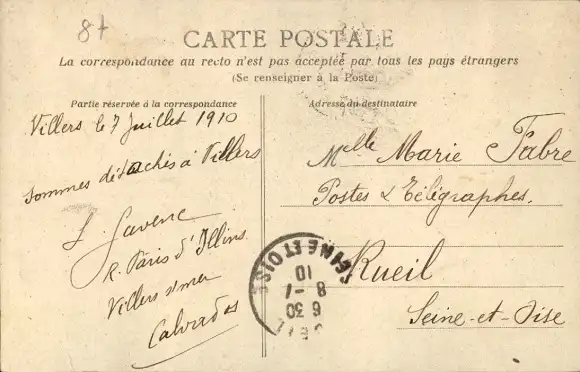 87
CARTE POSTALE
La correspondance au recto n'est pas acceptée par tous les pays étrangers
(Se renseigner à la Poste)
Partie réservée à la correspondance
Villers le 7 Juillet 1910
Sommes détachés à Villers
R. Paris d'Illins
Villers s/mer
Calvados
Adresse du destinataire
Melle Marie Fabre
Postes & Télégraphes.
Rueil
Seine-et-Oise
SEINE ET OISE
10
8 -7
6 30